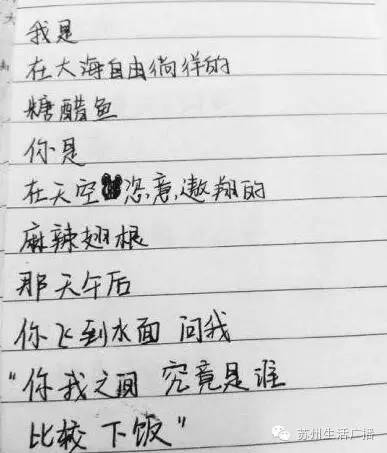 我是
在大海自由徜徉的
糖醋鱼
你是
在天空恣意遨翔的
麻辣翅根
那天午后
你飞到水面 问我
“你我之间 究竟是谁
比较 下饭”
苏州生活广播